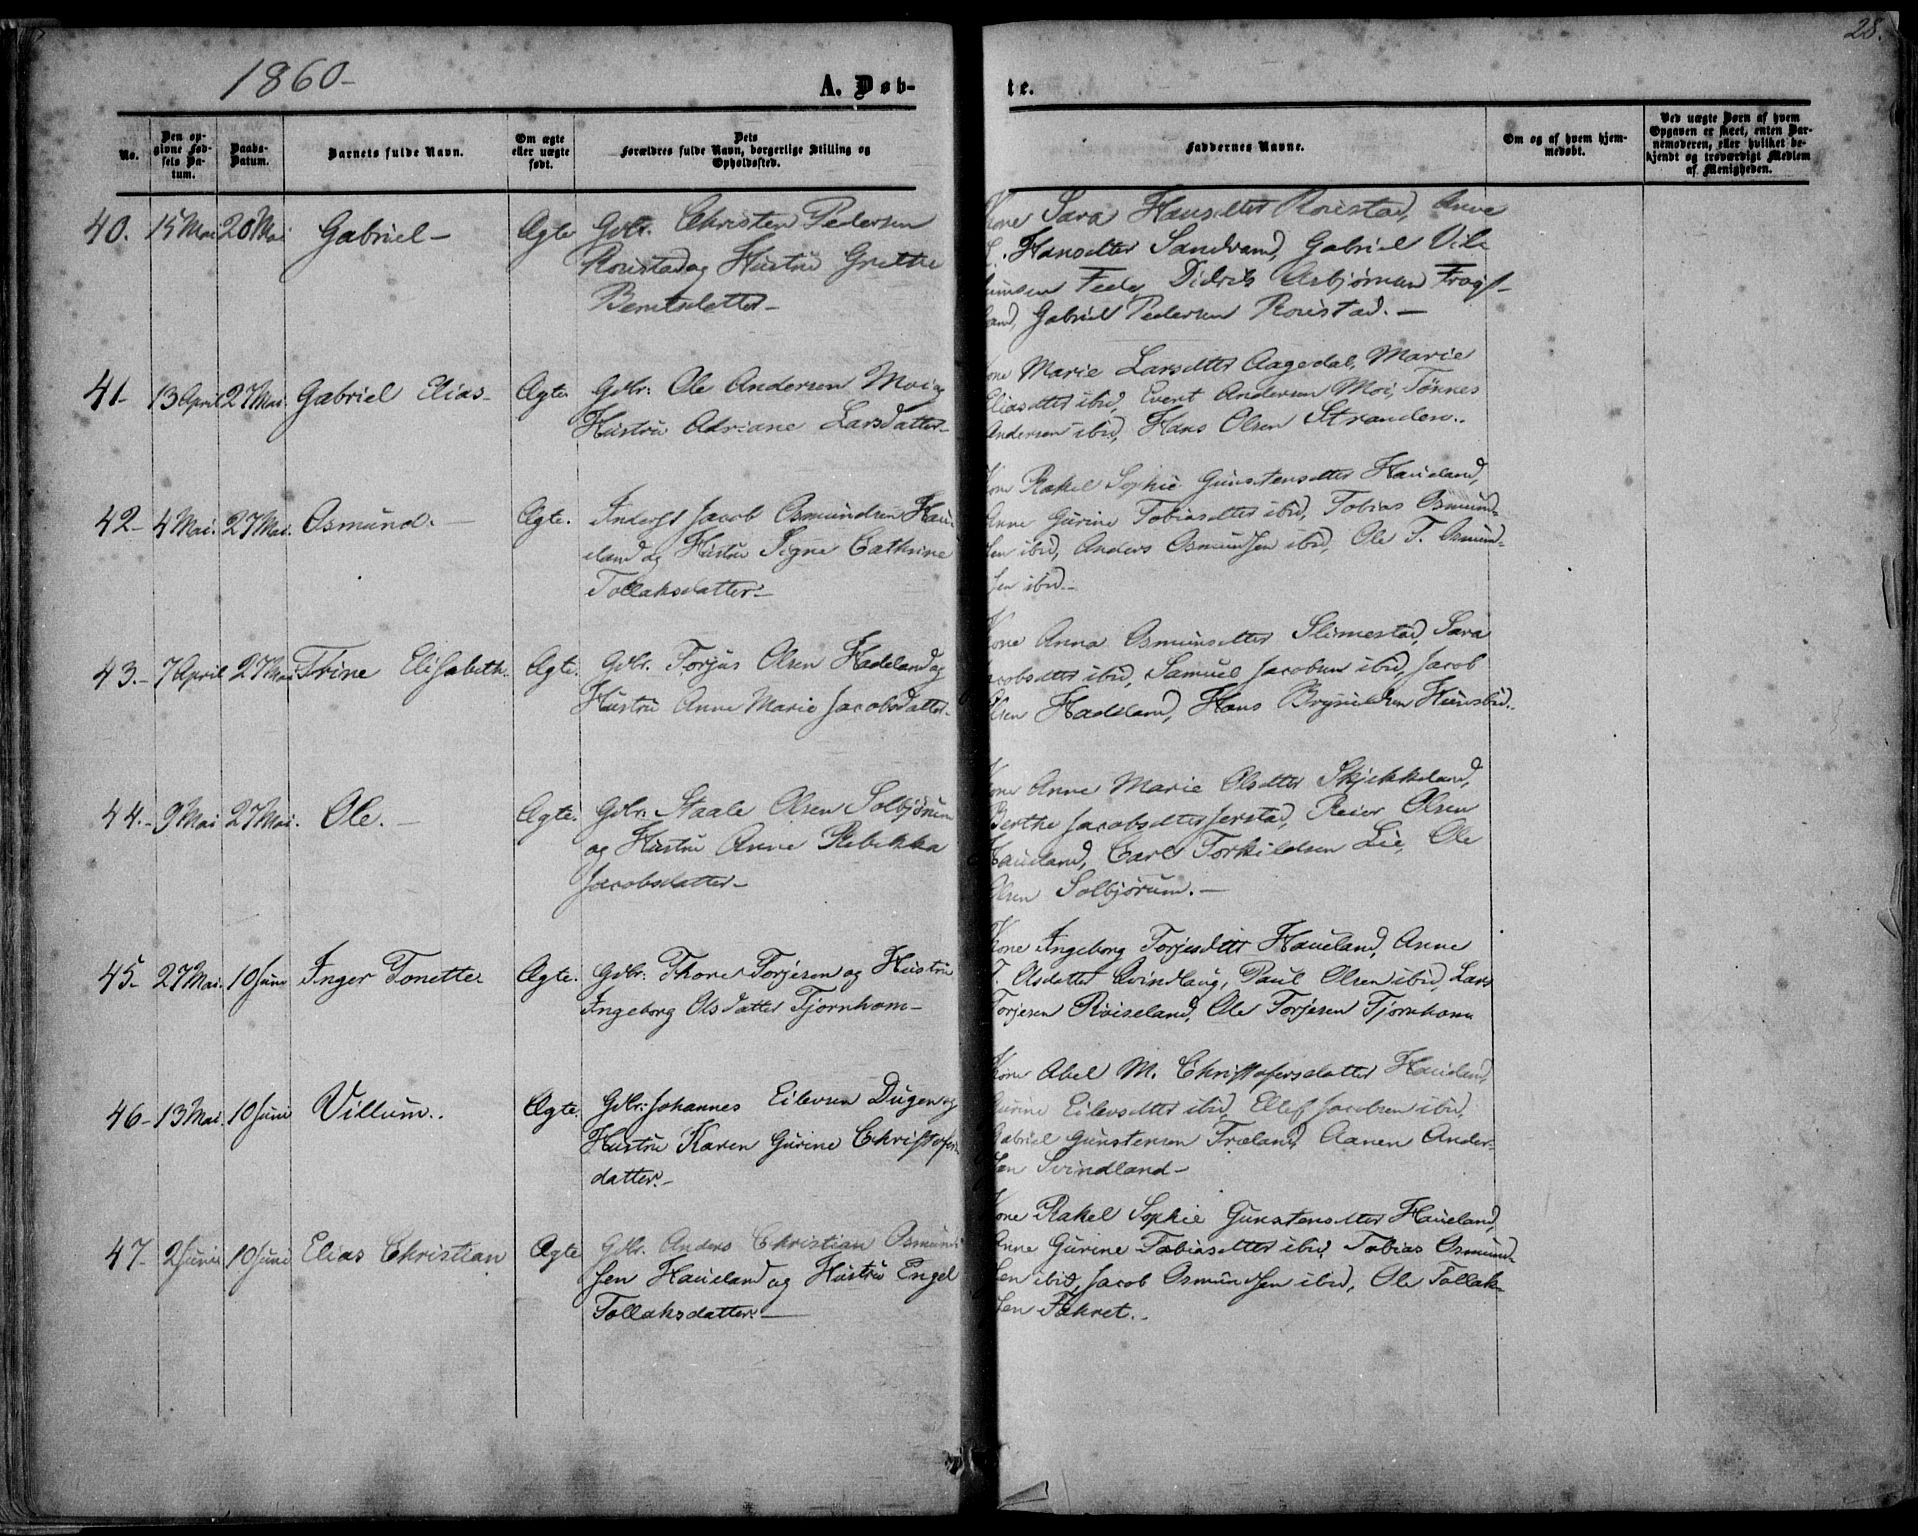 1860-
A. Døb-
te.
28.
No.
Den op-
givne Fød-
sels Da-
tum.
Daabs-
Datum.
Barnets fulde Navn.
Om ægte
eller uægte
født.
Dets
Forældres fulde Navn, borgerlige Stilling og
Opholdssted.
Faddernes Navne.
Om og af hvem hjem-
medøbt.
Ved uægte Børn af hvem
Opgaven er skeet, enten Bar-
nemoderen, eller hvilket be-
kjendt og troværdigt Medlem
af Menigheden.
40. 15 Mai 20 Mai Gabriel - Ægte Gdbr. Christen Pedersen
Rouestad og Hustru Grethe
Berntsdatter -
Kone Sara Hansdtter Rouestad, Anne
Hansdtter Sandvand, Gabriel Vil-
umsen Fede, Didrik Asbjørnsen Frøgt-
land, Gabriel Pedersen Rouestad. -
41- 13 April 27 Mai. Gabriel Elias - Ægte Gdbr: Ole Andersen Moi og
Hustru Adriane Larsdatter -
Kone Marie Larsdtter Aagedal, Marie
Eliasdtter ibid, Evert Andersen Moi, Tønnes
Andersen ibid, Hans Olsen Stranden.
42- 4 Mai. 27 Mai. Osmund. - Ægte. Inderst Jacob Osmundsen Haue-
land og Hustru Signe Cathrine
Tollaksdatter -
Kone Rakel Sophie Gunstensdtter Haueland,
Anne Gurine Tobiasdtter ibid, Tobias Osmund-
sen ibid, Anders Osmundsen ibid, Ole T. Osmund-
sen ibid -
43.- 7 April 27 Mai Trine Elisabeth. Ægte. Gdbr. Torjus Olsen Hadeland og
Hustru Anne Marie Jacobsdatter -
Kone Anna Osmunsdtter Slimestad, Sara
Jacobsdtter ibid, Samuel Jacobsen ibid, Jacob
Olsen Hadeland, Hans Brynildsen Hunsbid.
44.- 9 Mai 27 Mai. Ole. - Ægte. Gdbr. Staale Olsen Solbjørum
og Hustru Anne Rebekka
Jacobsdatter -
Kone Anne Marie Olsdtter Skjekkeland,
Berthe Jacobsdtter Jerstad, Reier Olsen
Haueland, Carl Torkildsen Lie, Ole
Olsen Solbjørum. -
45- 27 Mai. 10 Juni Inger Tonette Ægte. Gdbr. Thore Torjesen og Hustru
Ingeborg Olsdatter Tjørnhom -
Kone Ingeborg Torjesdtter Haueland, Anne
T. Olsdatter Svindlaug, Paul Olsen ibid, Lars
Torjesen Røiseland, Ole Torjesen Tjørnhom
46- 13 Mai. 10 Juni Villum.. Ægte. Gdbr. Johannes Eilevsen Dugen og
Hustru Karen Gurine Christofers-
datter. -
Kone Abel M. Christofersdatter Haueland,
Gurine Eilevsdtter ibid, Ellef Jacobsen ibid,
Gabriel Gunstensen Træland, Aanen Ander-
sen Svindland -
47- 2 Juni 10 Juni Elias Christian Ægte Gdbr. Anders Christian Osmund-
sen Haueland og Hustru Engel
Tollaksdatter. -
Kone Rakel Sophie Gunstensdtter Haueland,
Anne Gurine Tobiasdtter ibid, Tobias Osmund-
sen ibid, Jacob Osmundsen ibid, Ole Tollak-
sen